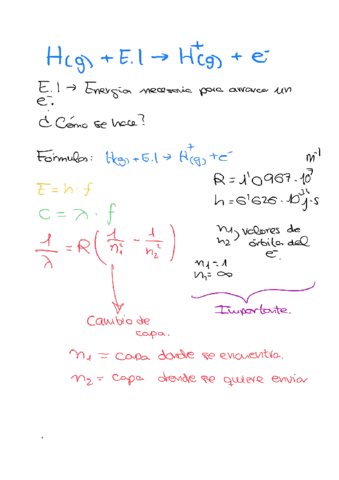 H(g) + E.I → H⁺(g) + e⁻
E.I → Energia necesaria para arrancar un
e⁻.
¿Cómo se hace?
Fórmulas: H(g) + E.I → H⁺(g) + e⁻
m⁻¹
R = 1'0967 · 10⁷
E = h · f
h = 6'626 · 10⁻³⁴ J·s
C = λ · f
1/λ = R (1/n₁² - 1/n₂²)
n₁, n₂ valores de
órbita del
e⁻.
n₁ = 1
n₂ = ∞
Importante.
Cambio de
capa.
n₁ = capa donde se encuentra.
n₂ = capa donde se quiere enviar